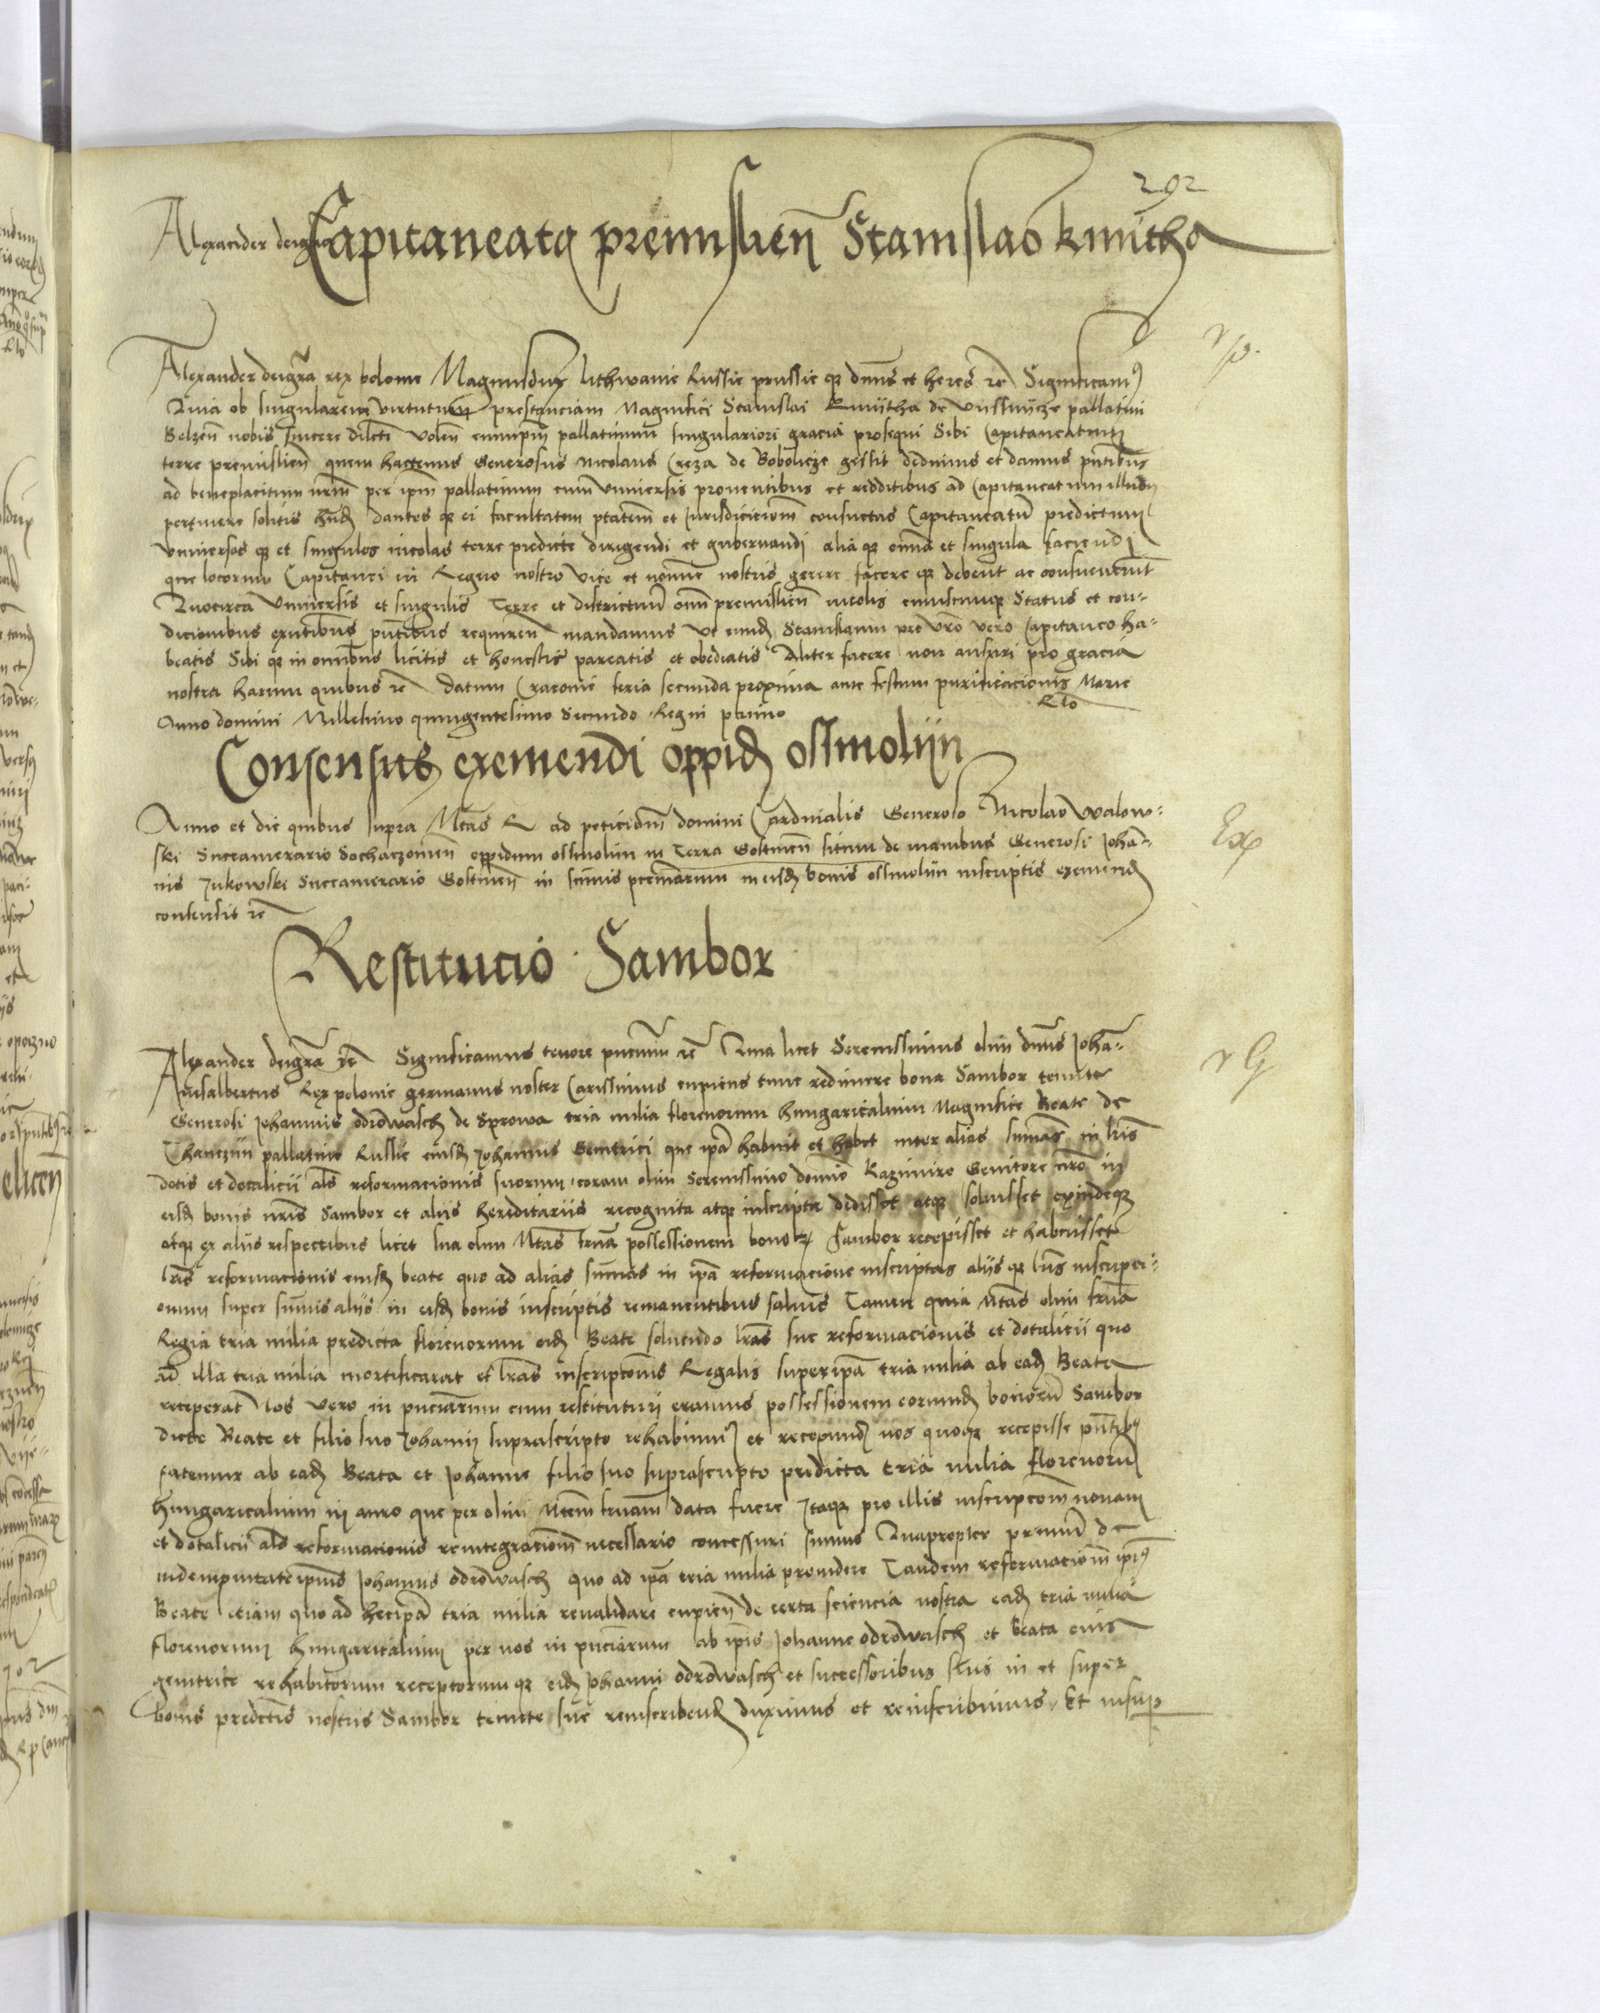 292
Alexander dei gra Capitaneatq premislien Stanislao kmitha
Alexander dei gra rex polonie Magnusdux lithwanie Russie prussie qz dnus et heres rc Significamus
Quia ob singularem virtutum prestanciam Magnifici Stanislai kmijtha de vissnijcze pallatini
Belzen nobis sincere dilecti volen eumpm pallatinum singulariori gracia prosequi Sibi Capitaneatum
terre premislien quem hactenus Generosus nicolaus Creza de Bobolicze gessit dedimus et damus pntibus
ad beneplacitum nrm per ipm pallatinum cum vniuersis prouentibus et redditibus ad Capitaneatum illudm
pertinere solitis hnd dantes qz ei facultatem ptatem et Jurisdicciom consuetas Capitaneatu predictum
vniuersos qz et singulos incolas terre predicte dirigendi et gubernandi alia qz omia et singula faciendi
que locorum Capitanei in Regno nostro vice et nomie nostris gerere facere qz debent ac consueuerunt
Quocirca vniuersis et singulis Terre et districtuu premislien incolis cuiuscumqz Status et con-
dicionibus exntibus pntibus requiren mandamus vt eund Stanislaum pro vro vero Capitaneo ha-
beatis Sibi qz in omibus licitis et honestis pareatis et obediatis Aliter facere non ausuri pro gracia
nostra harum quibus rc Datum Cracouie feria secunda proxima ante festum purificacionis Marie
Anno domini Millesimo quingentesimo Secundo Regni primo Rlo
Consensus exemendi oppid ossmolijn
Anno et die quibus supra Mtas R ad peticiom domini Cardinalis Generoso Nicolao walow-
ski Succamerario Sochaczouien oppidum ossmolijn in Terra Gostinen situm de manibus Generosi Joha-
nis Zukowski Succamerario Gostinen in sumis pcniarum in eisd bonis ossmolijn inscriptis exemend
consensit rc
Restitucio Sambor
Alexander dei gra rc Significamus tenore pncium rc Quia licet Serenissimus olim dnus Joha-
nnisalbertus Rex polonie germanus noster Carissimus cupiens tunc redimere bona Sambor tenute
Generosi Johannis odrowasch de Sprowa tria milia florenorum hungaricalium Magnifice Beate de
Thanczijn pallatine Russie eiusd Johannis Genitrici que ipa habuit et habet inter alias sumas in lris
dotis et dotalicii als reformacionis suorum coram olim Serenissimo domio kazimiro Genitore nro in
eisd bonis nris Sambor et aliis hereditariis recognita atqz inscripta dedisset atqz soluisset exindeqz
atqz ex aliis respectibus licet sua olim Mtas srma possessionem bonorz Sambor recepisset et habuisset
lras reformacionis eiusd beate quo ad alias sumas in ipa reformacione inscriptas aliis qz lris inscripci-
onum super sumis aliis in eisd bonis inscriptis remanentibus saluis Tamen quia Mtas olim srma
Regia tria milia predicta florenorum eid Beate soluendo lras sue reformacionis et dotalicii quo
ad illa tria milia mortificarat et lras inscriptionis Regalis super ipa tria milia ab ead Beata
receperat Nos vero in pnciarum cum restituturi eramus possessionem eorund bonorum Sambor
dicte Beate et filio suo Johanni suprascripto rehabuimus et recepimus nos quoqz recepisse pntibus
fatemur ab ead Beata et Johanne filio suo suprascripto predicta tria milia florenorum
hungaricalium in auro que per olim Mtem srmam data fuere Itaqz pro illis inscripcom nouam
et dotalicii als reformacionis reintegraciom necessario concessuri sumus Quapropter primum de
indempnitate ipius Johannis odrowasch quo ad ipa tria milia prouidere Tandem reformaciom ipius
Beate etiam quo ad hec ipa tria milia reualidare cupien de certa sciencia nostra ead tria milia
florenorum hungaricalium per nos in pnciarum ab ipis Johanne odrowasch et beata eius
genitrice rehabitorum receptorum qz eid Johanni odrowasch et successoribus suis in et super
bonis predictis nostris Sambor tenute sue reinscribend duximus et reinscribimus Et insup
r p.
Ex
r G